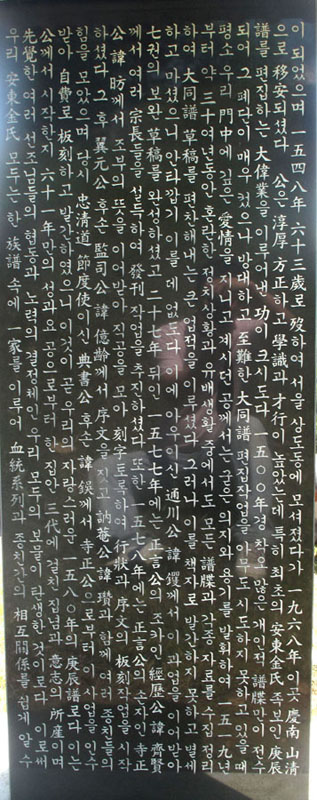 이 되었으며 一五四八年 六十三歲로 歿하여 서울 상도동에 모셔졌다가 一九六八年 이곳 慶南 山清
으로 移安되셨다 公은 淳厚 方正하고 學識과 才行이 높았는데 특히 최초의 安東金氏 족보인 庚辰
譜를 편집하는 大偉業을 이루어낸 功이 크시도다 一五○○年경 착오 많은 개인적 譜牒만이 전수
되어 그 폐단이 매우 컸으나 방대하고 至難한 大同譜 편집작업을 아무도 시도하지 못하고 있을 때
평소 우리 門中에 깊은 愛情을 지니고 계시던 公께서는 굳은 의지와 용기를 발휘하여 一五一九년
부터 약 三十여년동안 혼란한 정치상황과 유배생활중에서도 모든 譜牒과 각종 자료를 수집 정리
하여 大同譜 草稿를 편찬해내는 큰 업적을 이루셨다 그러나 이를 책자로 발간하지 못하고 별세
하고 마셨으니 안타깝기 이를 데 없도다 이에 아우이신 通川公 諱 钁께서 이 과업을 이어받아
七권의 보완 草稿를 완성하셨고 二十七年 뒤인 一五七七年에는 正言公의 조카인 經歷公 諱 齊賢
께서 여러 宗長들을 설득하여 發刊 작업을 추진하셨다 또한 一五七八年에는 正言公의 손자인 寺正
公 諱 昉께서 조부의 뜻을 이어받아 직공을 모아 刻字토록하여 行狀과 序文의 板刻작업을 시작
하셨다 그 후 翼元公 후손 監司公 諱 億齡께서 序文을 짓고 訥菴公 諱 瓚과 함께 여러 종친들의
힘을 모았으며 당시 忠清道 節度使이신 典書公 후손 諱 鍈께서 寺正公으로부터 이 사업을 인수
받아 自費로 板刻하고 발간하였으니 이것이 곧 우리의 자랑스러운 一五八○年의 庚辰譜로다 이는
公께서 시작한지 六十一年만의 성과요 공으로부터 한 집안 三代에 걸친 집념과 意志의 所産이며
先覺한 여러 선조님들의 협동과 노력의 결정체인 우리 모두의 보물이 탄생한 것이로다 이로써
우리 安東金氏 모두는 한 族譜 속에 一家를 이루어 血統系列과 종친간의 相互關係를 쉽게 알 수